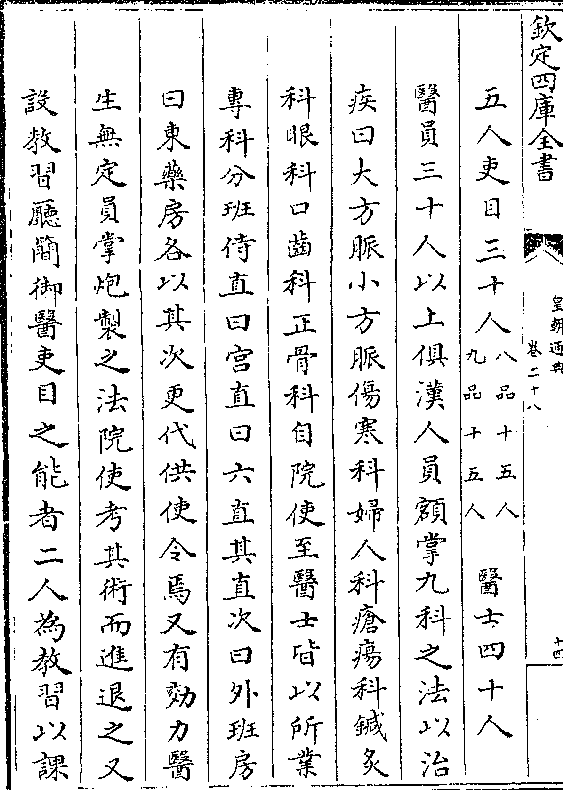 欽定四庫全書
皇朝通典
卷二十八
十四
五人吏目三十人八品十五人九品十五人醫士四十人
醫員三十人以上俱漢人員額掌九科之法以治
疾曰大方脈小方脈傷寒科婦人科瘡瘍科鍼灸
科眼科口齒科正骨科自院使至醫士皆以所業
專科分班侍直曰宮直曰六直其直次曰外班房
曰東藥房各以其次更代供使令焉又有効力醫
生無定員掌炮製之法院使考其術而進退之又
設教習廳簡御醫吏目之能者二人為教習以課